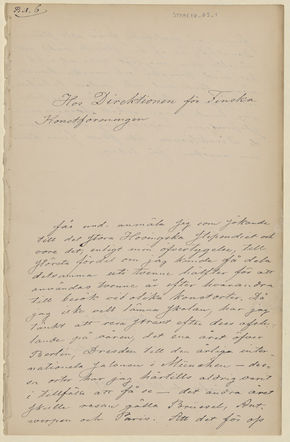 Bil. 6.
Hos Direktionen för Finska
Konstföreningen
får und. anmäla sig som sökande
till det stora Hovingska Stipendiet och
vore det, enligt min öfvertygelse, till
största fördel om jag kunde få dela
delsumma uti tvenne hälfter för att
användas tvenne år efter hvarandra
till besök vid olika konstorter. Då
jag icke vill lämna skolan, har jag
tänkt att resa strax efter dess afslu-
tande på våren, det ena året öfver
Berlin, Dresden till den årliga inter-
nationela Salonen i München — des-
sa orter har jag härtills aldrig varit
i tillfälle att få se — det andra året
skulle resan gälla Brüssel, Ant-
werpen och Paris. Till det för op